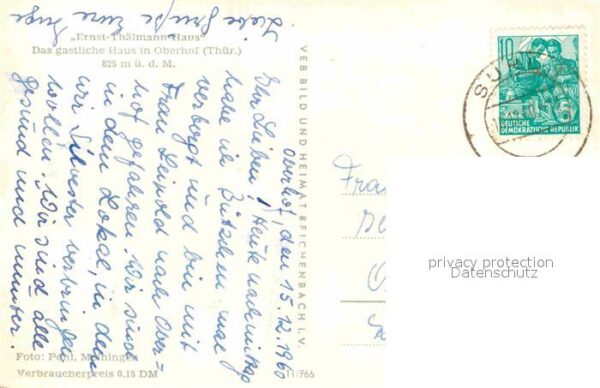 „Ernst-Thälmann-Haus"
Das gastliche Haus in Oberhof (Thür.)
825 m ü. d. M.
VEB BILD UND HEIMAT REICHENBACH I. V.
10
5
DEUTSCHE
DEMOKRATISCHE REPUBLIK
SUHL
Oberhof, den 15.12.1960
Ihr Lieben! Heute nachmittag
habe ich mal
verborgt und bin mit
Frau Leipold nach Ober-
hof gefahren. Wir sind
in dem Lokal, in dem
wir Silvester verbringen
wollen. Wir sind alle
gesund und munter.
Liebe Grüße Eure Inge
Fra
privacy protection
Datenschutz
Foto: Pohl, Meiningen
Verbraucherpreis 0,15 DM